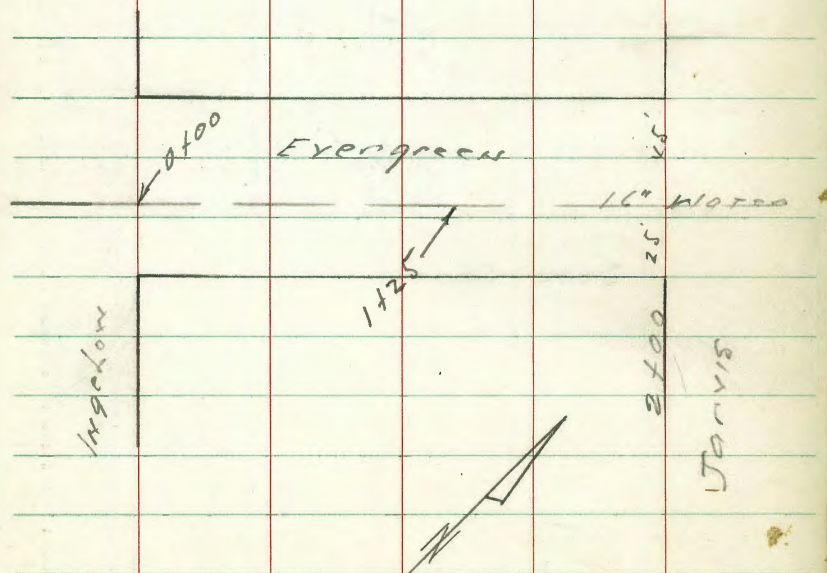 0+00
Evergreen
45'
16" Water
25'
1+25
Ingelow
2+00
Jarvis
N